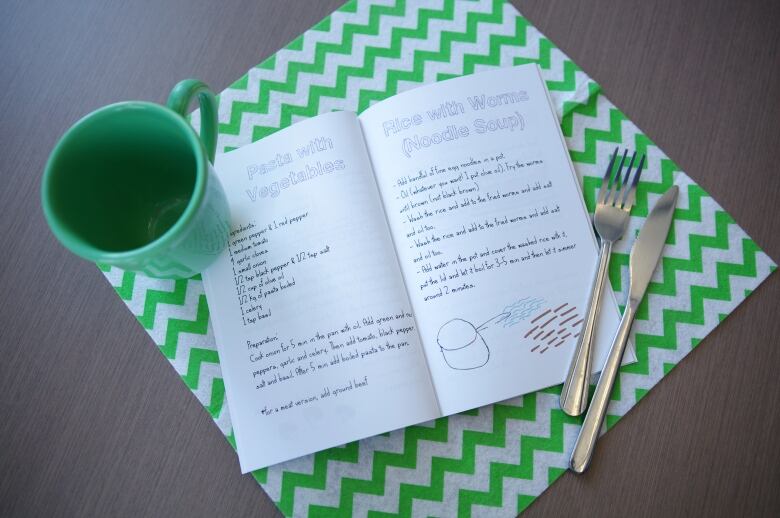 Pasta with
Vegetables
1 green pepper & 1 red pepper
1 medium tomato
1 garlic cloves
1 small onion
1/2 tsp black pepper & 1/2 tsp salt
1/2 cup of olive oil
1/2 kg of pasta boiled
1 celery
1 tsp basil
Preparation:
Cook onion for 5 min in the pan with oil. Add green and
peppers, garlic and celery. Then add tomato, black pepper
salt and basil. After 5 min add boiled pasta to the pan.
*for a meat version, add ground beef
Rice with Worms
(Noodle Soup)
- Add handful of fine egg noodles in a pot.
- Oil (whatever you want! I put olive oil). Fry the worms
until brown (not black brown)
- Wash the rice and add to the fried worms and add salt
and oil too.
- Wash the rice and add to the fried worms, and add salt
and oil too.
- Add water in the pot and cover the washed rice with it,
put the lid and let it boil for 3-5 min and then let it simmer
around 12 minutes.